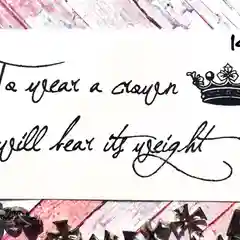 To wear a crown
will bear its weight